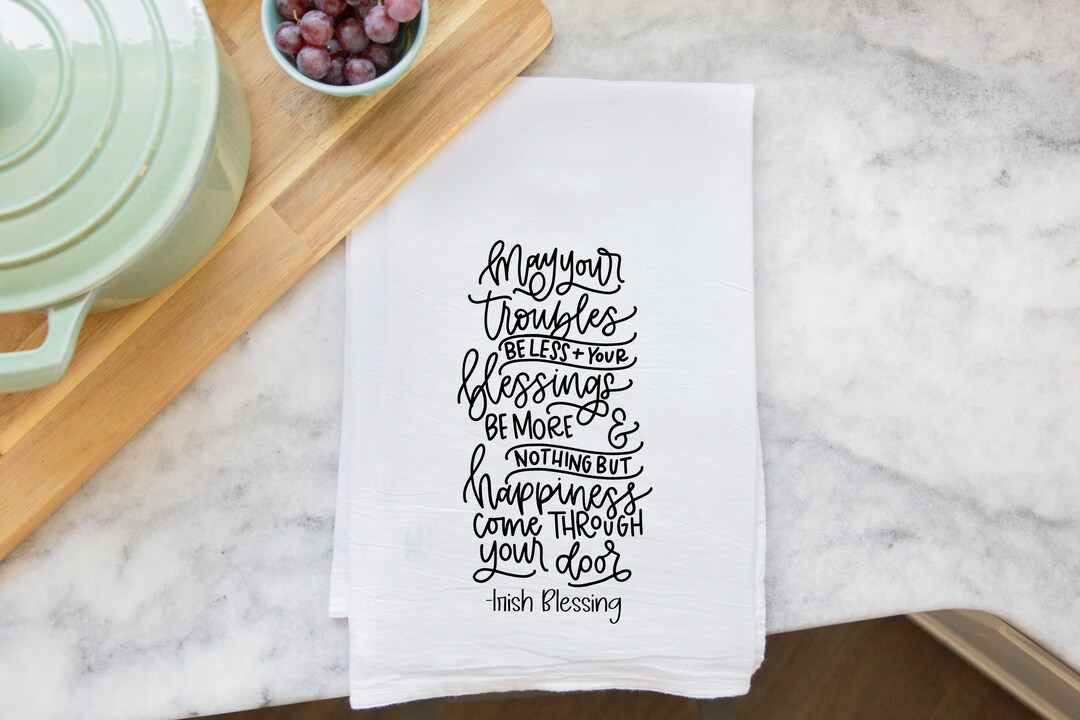 May your
troubles
BE LESS + YOUR
blessings
BE MORE &
NOTHING BUT
happiness
come THROUGH
your door
-Irish Blessing